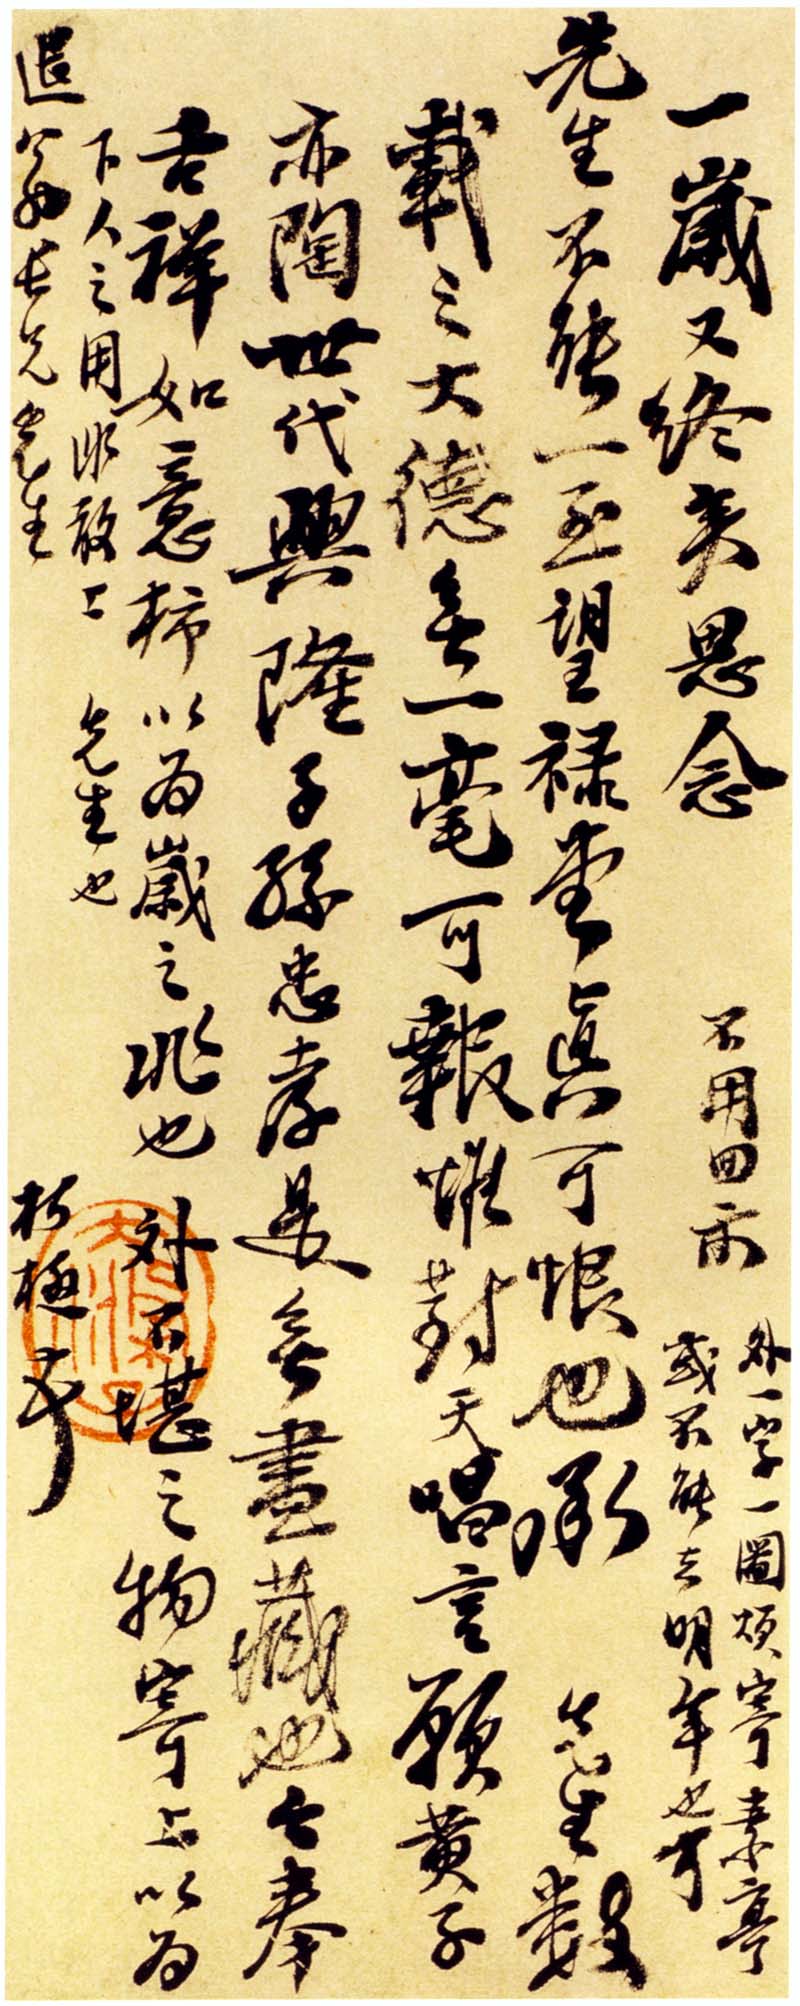 一歲又終矣思念
先生不能一至望祿堂真可恨也承 先生數
載之大德無一毫可報惟對天唱言願黃子
亦陶世代興隆子孫忠孝是無盡藏也今奉
吉祥如意柿以為歲之兆也外不堪之物寄上以為
下人之用非敢上 先生也
退翁長兄先生
朽極
不用回示
外一字一圖煩寄素亭
或不能去明年也可